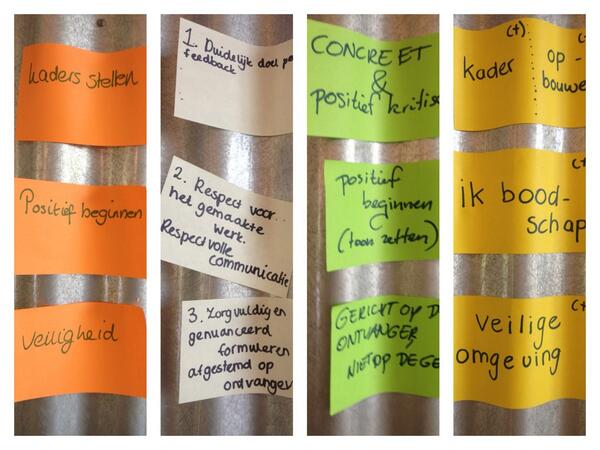 kaders stellen
Positief beginnen
veiligheid
1. Duidelijk doel
feedback
2. Respect voor...
het gemaakte
werk.
Respectvolle
communicatie
3. Zorgvuldig en
genuanceerd
formuleren
afgestemd op
ontvanger
CONCREET
&
positief kritisc
positief
beginnen
(toon zetten)
GERICHT OP D
ONTVANGER,
NIET OP DE GE
(+)
kader
op-
bouwe
ik bood-
schap
(+
veilige
omgeving